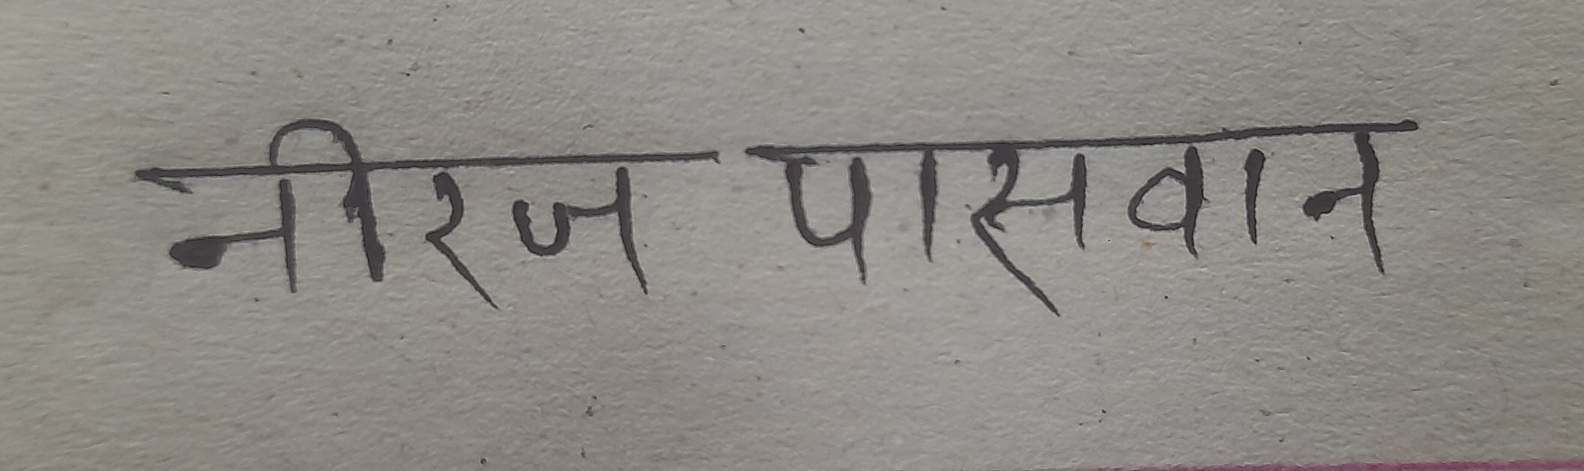 नीरज पासवान